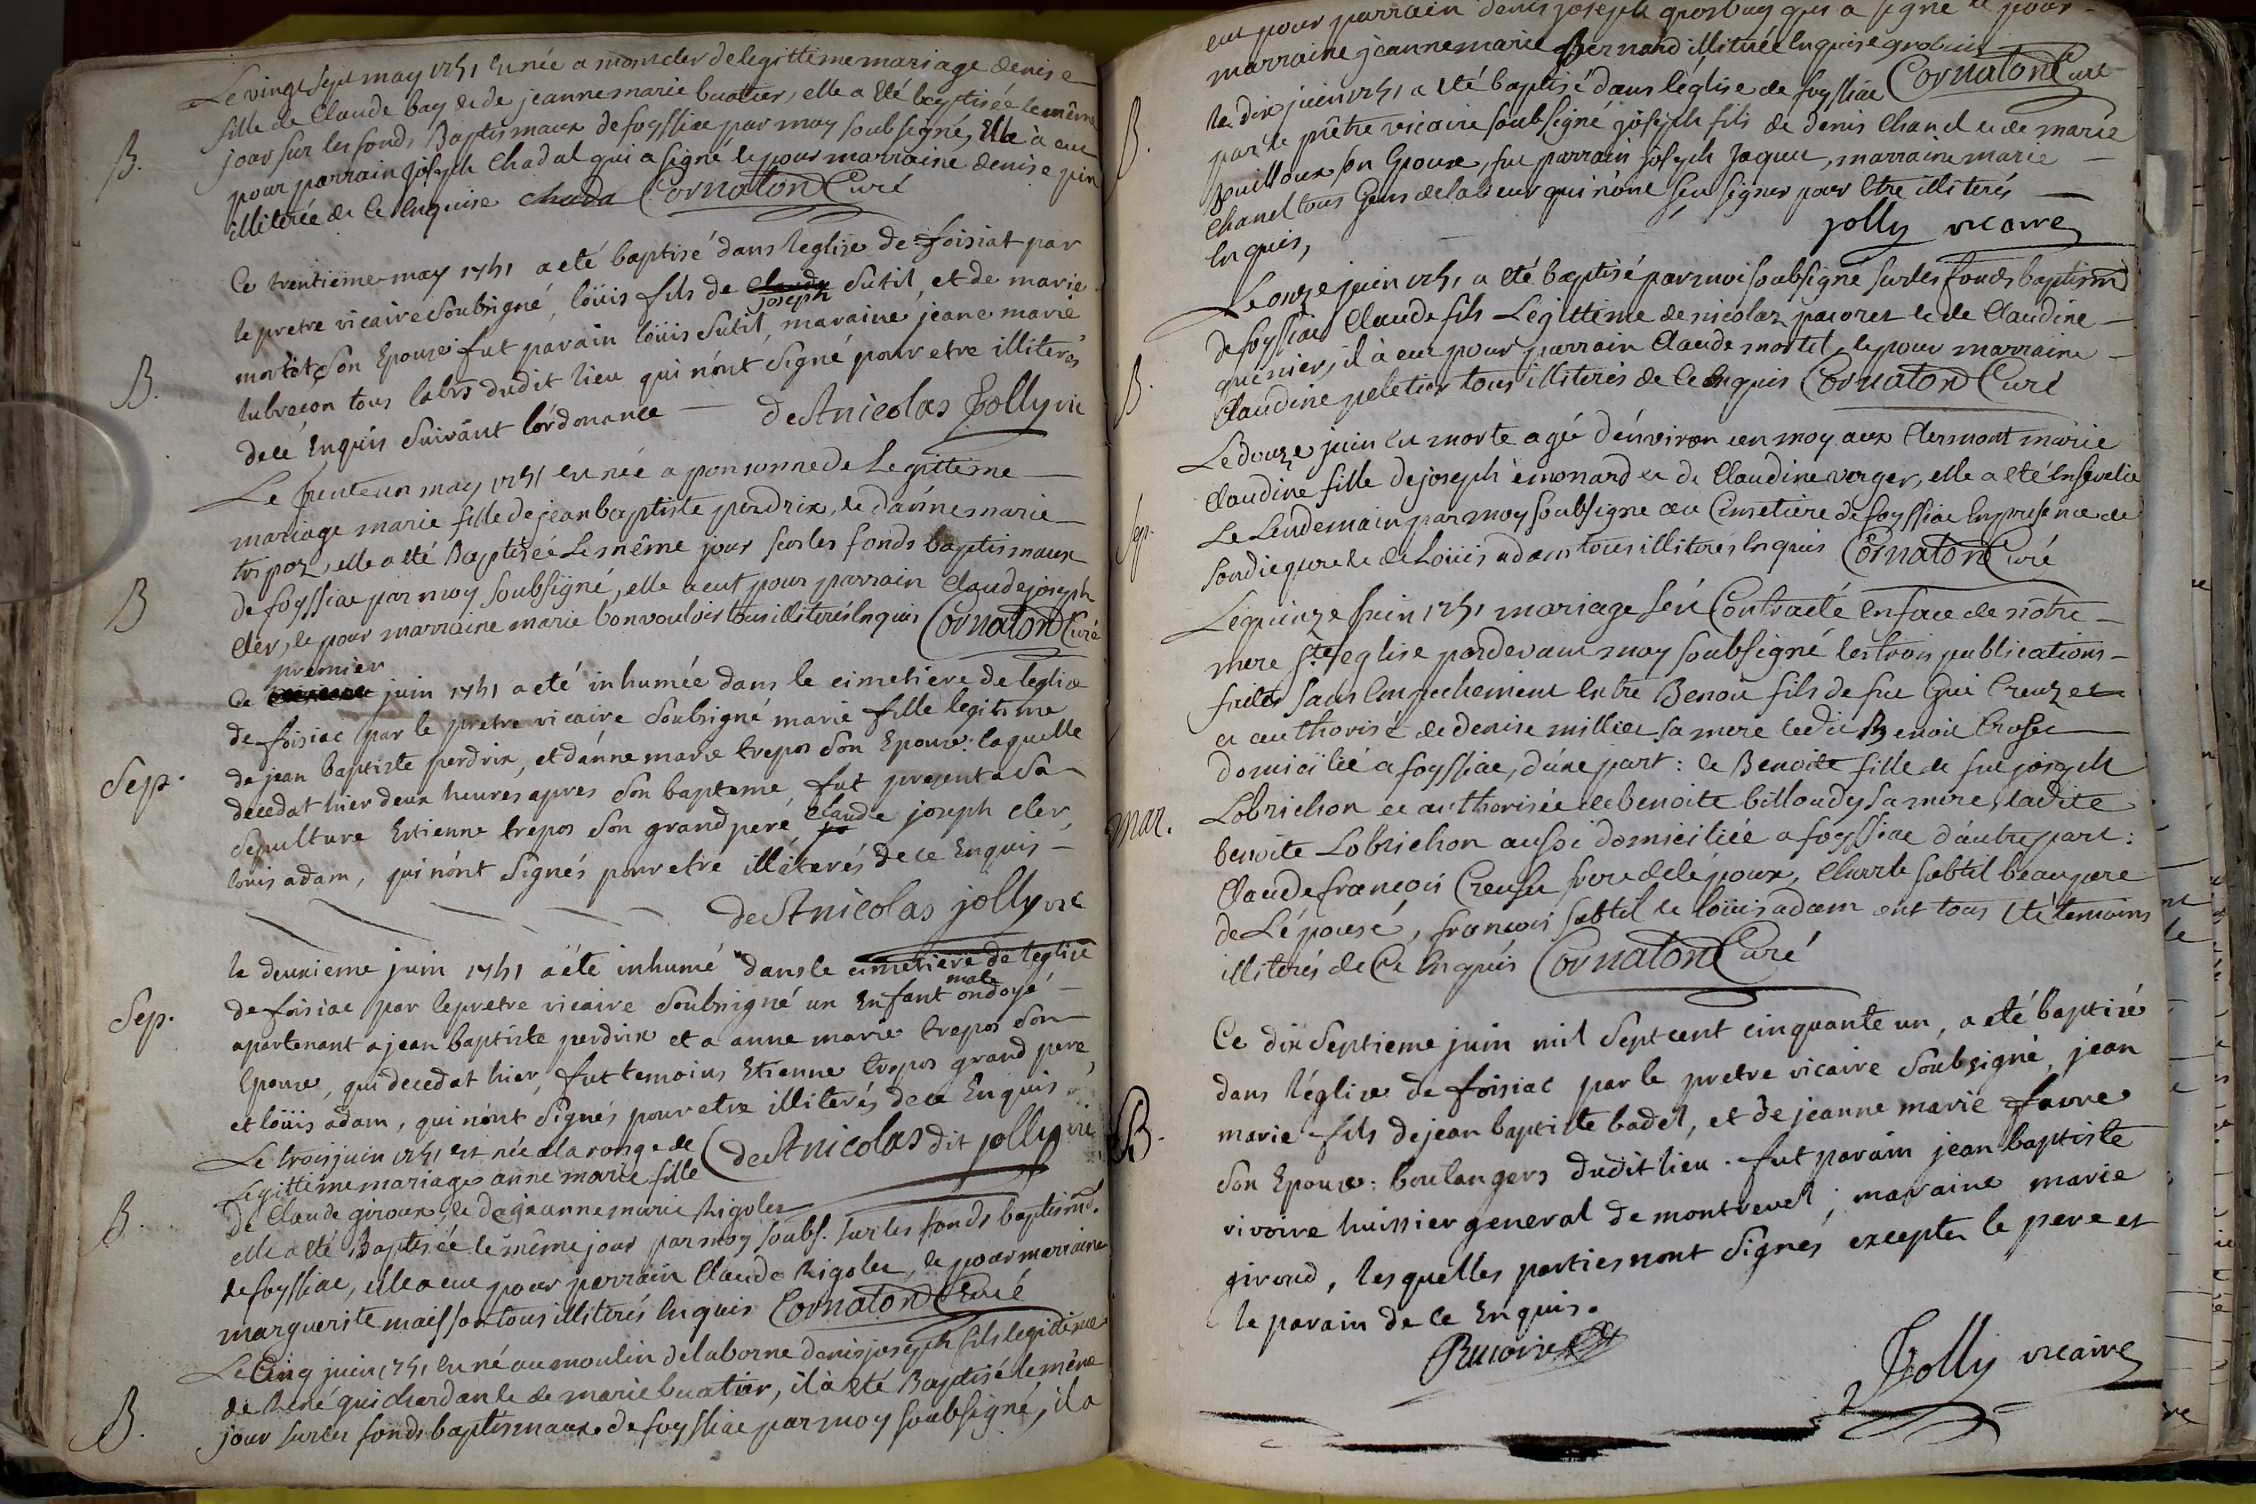 Le vingt sept may 1751 est née a montcler de legittime mariage denise
fille de Claude bay et de jeannemarie buatier, elle a été baptisée le même
B. jour sur les fonds Baptismaux de foyssiac par moy soubsigné, Elle à eut
pour parrain joseph Chadal qui a signé et pour marraine denise pin
illiterée de ce enquise Cornaton Curé
Ce trentième may 1751 a eté baptisé dans leglise de foisiat par
le pretre vicaire soubsigné, loüis fils de claude joseph Sutil et de marie
B. mortet son Epouse fut parain loüis Sutil, maraine jeane marie
lubrecon tous labrs dudit lieu qui n'ónt signé pour etre illiterés
de cé enquis suivant lórdonance — de St nicolas Jolly vic
Le trente un may 1751 est née a ponsonne de Legittime
mariage marie fille de jean baptiste perdrix, et d'anne marie
trepoz, elle a été Baptisée Le même jour sur les fonds baptismaux
B de foyssiac par moy soubsigné, elle a eut pour parrain Claude joseph
cler, et pour marraine marie bonvouloir tous illiterés enquis Cornaton Curé
premier
Ce juin 1751 a eté inhumée dans le cimetiere de leglise
de foisiac par le pretre vicaire soubsigné marie fille legitime
Sep. de jean baptiste perdrix, et d'anne marie trepos son Epouse: laquelle
decedat hier deux heures apres son bapteme fut present a sa
sepulture Estienne trepos son grand pere, claude joseph cler,
louis adam, qui n'ónt signés pour etre illiterés de ce Enquis —
de St nicolas jolly vic
le deuxieme juin 1751 a été inhumé dans le cimetiere de leglise
Sep. de foisiac par le pretre vicaire soubsigné un Enfant male ondoyé
apartenant a jean baptiste perdrix et a anne marie trepos son
Epouse, qui decedat hier, fut temoins Etienne trepos grand pere,
et loüis adam, qui n'ónt signés pour etre illiterés de ce Enquis
Le trois juin 1751 est née a la ronge de de St nicolas dit jolly vic
Legittime mariage anne marie fille
B. de Claude giroux, et de jeanne marie Rigolet
elle a été Baptisée le même jour par moy soubs. sur les fonds baptism.
de foyssiac, elle a eut pour parrain Claude Rigolet, et pour marraine
marguerite maisson tous illiterés enquis Cornaton Curé
Le Cinq juin 1751 est né au moulin de laborne denis joseph fils legittime
de René guichardan et de marie buatier, il à été Baptisé le même
B. jour sur les fonds baptismaux de foyssiac par moy soubsigné, il a
eut pour parrain denis joseph grosbuy qui a signé et pour
marraine jeanne marie Bernard illiterée enquise Cornaton Curé
B. le dix juin 1751 a été baptisé dans léglise de foyssiac
par le prêtre vicaire soubsigné joseph fils de denis Chanel et de marie
son Epouse, fut parrain joseph Jaquet, marraine marie
Chanel tous Gens de labeur qui nónt sçu signer pour être illiterés
enquis, jolly vicaire
Le onze juin 1751 a été baptisé par moi soubsigné sur les fonds baptism
de foyssiac Claude fils Legittime de nicolas et de Claudine
B. quesnier, il à eut pour parrain Claude mortel, et pour marraine
Claudine peletier tous illiterés de ce enquis Cornaton Curé
Le douze juin est morte agée d'environ un moy aux Clermont marie
Claudine fille de joseph émonard et de Claudine verger, elle a été ensevelie
Sep. Le Lendemain par moy soubsigné au Cimetiere de foyssiac en presence de
et de Loüis adam tous illiterés enquis Cornaton Curé
Le quinze juin 1751 mariage feu Contracté en face de nôtre
mere Ste eglise pardevant moy soubsigné les trois publications
faites sans empechement entre Benoit fils de feu Gui Creuzet
et authorisé de denise millier sa mere ledit Benoit Croset
domicilié a foyssiac, d'une part: et Benoite fille de feu joseph
mar. Lobrichon et authorisée de benoite billoudy sa mere ladite
benoite Lobrichon aussi domiciliée a foyssiac d'autre part:
Claude francois Creuset frere de lépoux, Charle subtil beaupere
de Lépouse, francois subtil et loüis adam ont tous été temoins
illiterés de Ce enquis Cornaton Curé
Ce dix Septieme juin mil Sept cent cinquante un, a eté baptisé
dans l'église de foisiac par le pretre vicaire soubsigné, jean
B. marie fils de jean baptiste badel, et de jeanne marie favre
son Epouse: boulangers dudit lieu. fut parain jean baptiste
rivoire huissier general de montrevel, maraine marie
giroud, les quelles parties n'ont signés excepter le pere et
le parain de ce Enquis.
Rivoire
Jolly vicaire